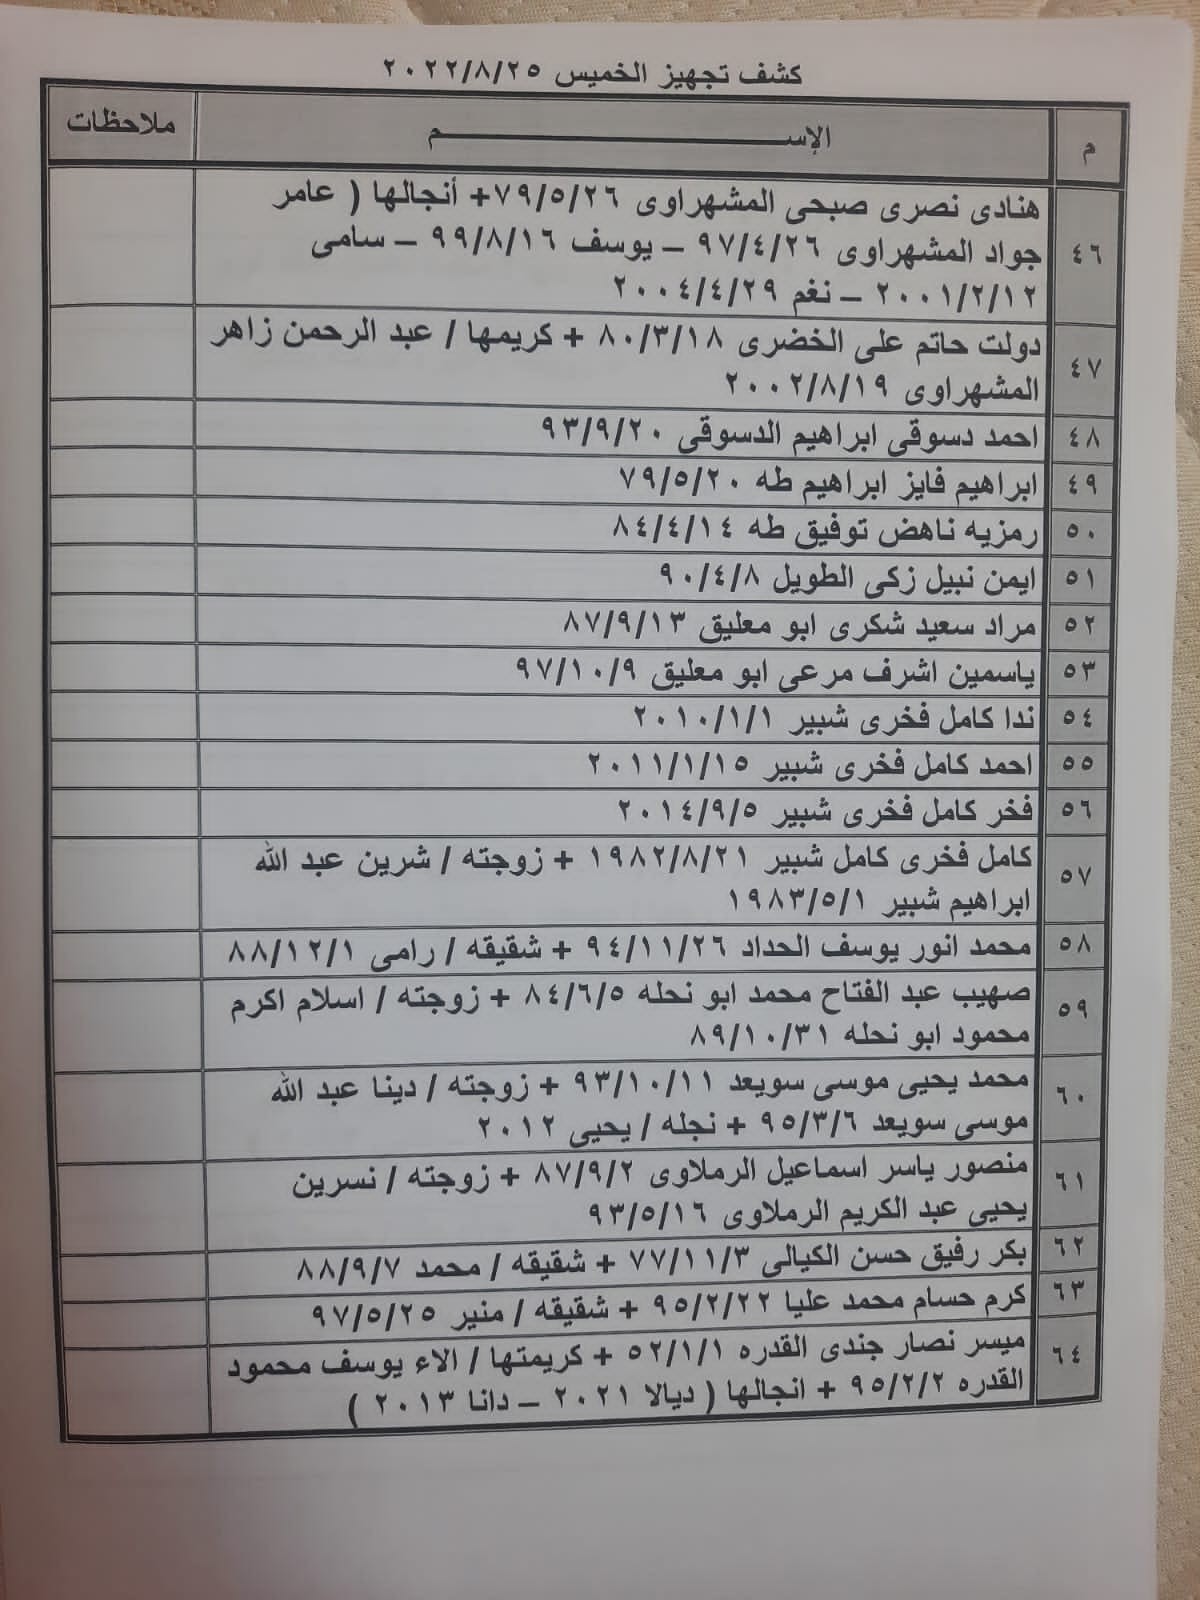 كشف تجهيز الخميس ٢٠٢٢/٨/٢٥
م الإســـــــــم ملاحظات
٤٦ هنادى نصرى صبحى المشهراوى ٧٩/٥/٢٦+ أنجالها ( عامر
جواد المشهراوى ٩٧/٤/٢٦ – يوسف ٩٩/٨/١٦ – سامى
٢٠٠١/٢/١٢ – نغم ٢٠٠٤/٤/٢٩
٤٧ دولت حاتم على الخضرى ٨٠/٣/١٨ + كريمها / عبد الرحمن زاهر
المشهراوى ٢٠٠٢/٨/١٩
٤٨ احمد دسوقى ابراهيم الدسوقى ٩٣/٩/٢٠
٤٩ ابراهيم فايز ابراهيم طه ٧٩/٥/٢٠
٥٠ رمزيه ناهض توفيق طه ٨٤/٤/١٤
٥١ ايمن نبيل زكى الطويل ٩٠/٤/٨
٥٢ مراد سعيد شكرى ابو معليق ٨٧/٩/١٣
٥٣ ياسمين اشرف مرعى ابو معليق ٩٧/١٠/٩
٥٤ ندا كامل فخرى شبير ٢٠١٠/١/١
٥٥ احمد كامل فخرى شبير ٢٠١١/١/١٥
٥٦ فخر كامل فخرى شبير ٢٠١٤/٩/٥
٥٧ كامل فخرى كامل شبير ١٩٨٢/٨/٢١ + زوجته / شرين عبد الله
ابراهيم شبير ١٩٨٣/٥/١
٥٨ محمد انور يوسف الحداد ٩٤/١١/٢٦ + شقيقه / رامى ٨٨/١٢/١
٥٩ صهيب عبد الفتاح محمد ابو نحله ٨٤/٦/٥ + زوجته / اسلام اكرم
محمود ابو نحله ٨٩/١٠/٣١
٦٠ محمد يحيى موسى سويعد ٩٣/١٠/١١ + زوجته / دينا عبد الله
موسى سويعد ٩٥/٣/٦ + نجله / يحيى ٢٠١٢
٦١ منصور ياسر اسماعيل الرملاوى ٨٧/٩/٢ + زوجته / نسرين
يحيى عبد الكريم الرملاوى ٩٣/٥/١٦
٦٢ بكر رفيق حسن الكيالى ٧٧/١١/٣ + شقيقه / محمد ٨٨/٩/٧
٦٣ كرم حسام محمد عليا ٩٥/٢/٢٢ + شقيقه / منير ٩٧/٥/٢٥
٦٤ ميسر نصار جندى القدره ٥٢/١/١ + كريمتها / الاء يوسف محمود
القدره ٩٥/٢/٢ + انجالها ( ديالا ٢٠٢١ – دانا ٢٠١٣ )